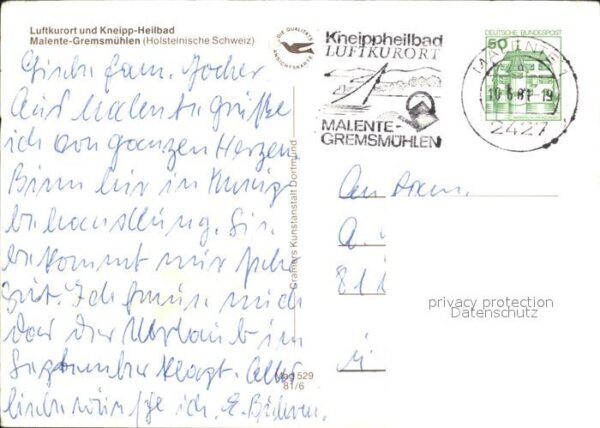 Luftkurort und Kneipp-Heilbad
Malente-Gremsmühlen (Holsteinische Schweiz)
DIE QUALITÄTS
ANSICHTSKARTE
Kneippheilbad
LUFTKURORT
MALENTE-
GREMSMÜHLEN
DEUTSCHE BUNDESPOST
50
MALENTE 1
10.6.81 19
2427
Fam.
Aus Malente grüße
ich von ganzen Herzen.
Binn hir in Kneip
behandlung.
bekommt mir sehr
gut. Ich freue mich
das der Uhrlaub im
September klapt. Alles
liebe wünsche ich, E.
Cramers Kunstanstalt Dortmund
529
81/6
An Fam.
A.
privacy protection
Datenschutz